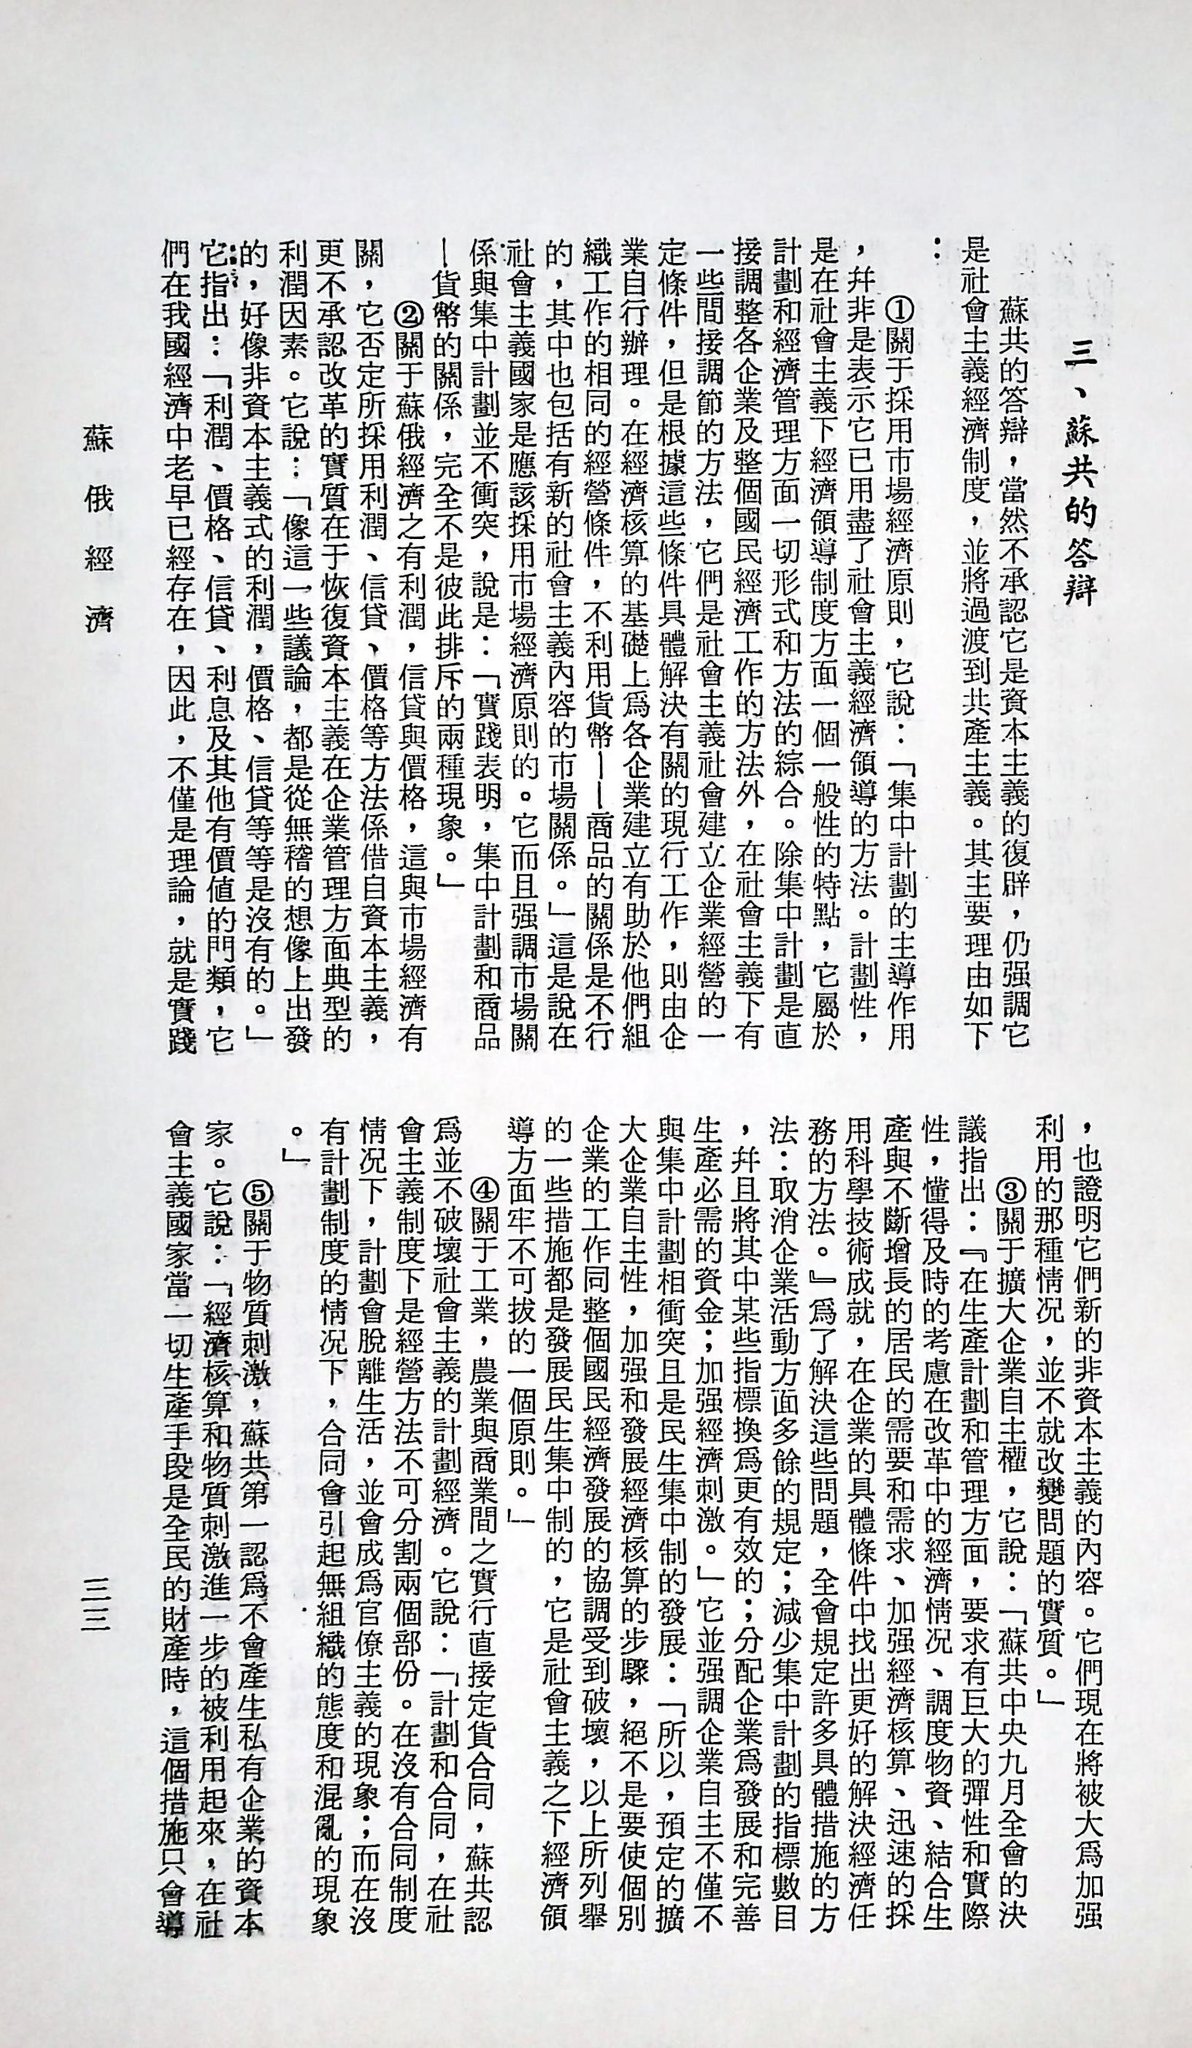 三、蘇共的答辯
蘇共的答辯，當然不承認它是資本主義的復辟，仍强調它
是社會主義經濟制度，並將過渡到共產主義。其主要理由如下
：
①關于採用市場經濟原則，它說：「集中計劃的主導作用
，幷非是表示它已用盡了社會主義經濟領導的方法。計劃性，
是在社會主義下經濟領導制度方面一個一般性的特點，它屬於
計劃和經濟管理方面一切形式和方法的綜合。除集中計劃是直
接調整各企業及整個國民經濟工作的方法外，在社會主義下有
一些間接調節的方法，它們是社會主義社會建立企業經營的一
定條件，但是根據這些條件具體解決有關的現行工作，則由企
業自行辦理。在經濟核算的基礎上爲各企業建立有助於他們組
織工作的相同的經營條件，不利用貨幣——商品的關係是不行
的，其中也包括有新的社會主義內容的市場關係。」這是說在
社會主義國家是應該採用市場經濟原則的。它而且强調市場關
係與集中計劃並不衝突，說是：「實踐表明，集中計劃和商品
—貨幣的關係，完全不是彼此排斥的兩種現象。」
②關于蘇俄經濟之有利潤，信貸與價格，這與市場經濟有
關，它否定所採用利潤、信貸、價格等方法係借自資本主義，
更不承認改革的實質在于恢復資本主義在企業管理方面典型的
利潤因素。它說：「像這一些議論，都是從無稽的想像上出發
的，好像非資本主義式的利潤，價格、信貸等等是沒有的。」
它指出：「利潤、價格、信貸、利息及其他有價值的門類，它
們在我國經濟中老早已經存在，因此，不僅是理論，就是實踐
，也證明它們新的非資本主義的內容。它們現在將被大爲加强
利用的那種情況，並不就改變問題的實質。」
③關于擴大企業自主權，它說：「蘇共中央九月全會的決
議指出：『在生產計劃和管理方面，要求有巨大的彈性和實際
性，懂得及時的考慮在改革中的經濟情況、調度物資、結合生
產與不斷增長的居民的需要和需求、加强經濟核算、迅速的採
用科學技術成就，在企業的具體條件中找出更好的解決經濟任
務的方法。』爲了解決這些問題，全會規定許多具體措施的方
法：取消企業活動方面多餘的規定；減少集中計劃的指標數目
，幷且將其中某些指標換爲更有效的；分配企業爲發展和完善
生產必需的資金；加强經濟刺激。」它並强調企業自主不僅不
與集中計劃相衝突且是民生集中制的發展：「所以，預定的擴
大企業自主性，加强和發展經濟核算的步驟，絕不是要使個別
企業的工作同整個國民經濟發展的協調受到破壞，以上所列舉
的一些措施都是發展民生集中制的，它是社會主義之下經濟領
導方面牢不可拔的一個原則。」
④關于工業，農業與商業間之實行直接定貨合同，蘇共認
爲並不破壞社會主義的計劃經濟。它說：「計劃和合同，在社
會主義制度下是經營方法不可分割兩個部份。在沒有合同制度
情況下，計劃會脫離生活，並會成爲官僚主義的現象；而在沒
有計劃制度的情况下，合同會引起無組織的態度和混亂的現象
。」
⑤關于物質刺激，蘇共第一認爲不會產生私有企業的資本
家。它說：「經濟核算和物質刺激進一步的被利用起來，在社
會主義國家當一切生產手段是全民的財產時，這個措施只會導
蘇俄經濟
三三